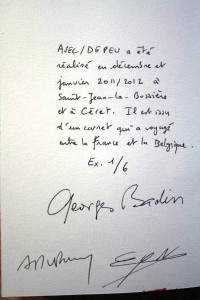 AVEC/DEPEU a été
réalisé en décembre et
janvier 2011/2012 à
Saint-Jean-la-Bussière
et à Céret. Il est issu
d'un carnet qui a voyagé
entre la France et la Belgique.
Ex. 1/6
Georges Badin